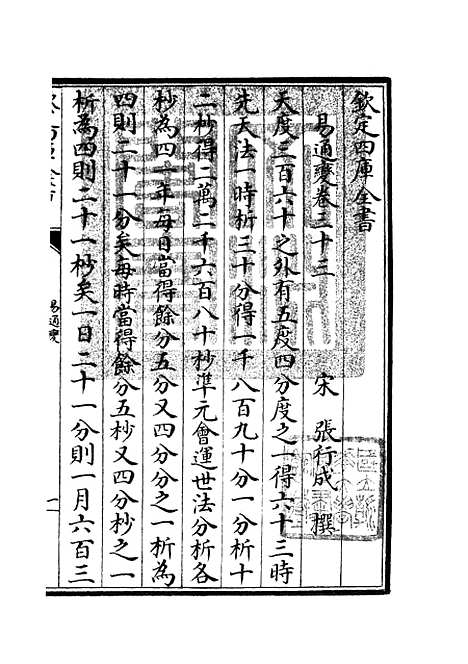 欽定四庫全書
易通變卷三十三
宋 張行成 撰
天度三百六十之外有五度四分度之一得六十三時
先天法一時析三十分得一千八百九十分一分析十
二秒得二萬二千六百八十秒準元會運世法分析各
秒為四十年每日當得餘分五分又四分分之一析為
四則二十一分矣每時當得餘分五秒又四分秒之一
析為四則二十一秒矣一日二十一分則一月六百三
易通變
一